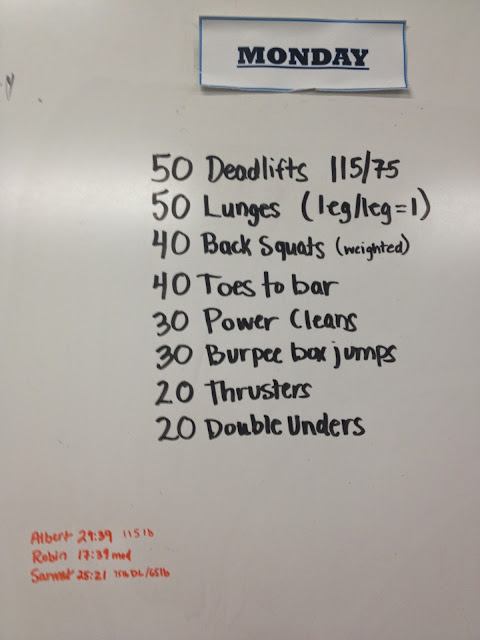 MONDAY
50 Deadlifts 115/75
50 Lunges (leg/leg=1)
40 Back Squats (weighted)
40 Toes to bar
30 Power Cleans
30 Burpee box jumps
20 Thrusters
20 Double Unders
Albert 29:39 115 lb
Robin 17:39 mod
25:21 DL/65lb